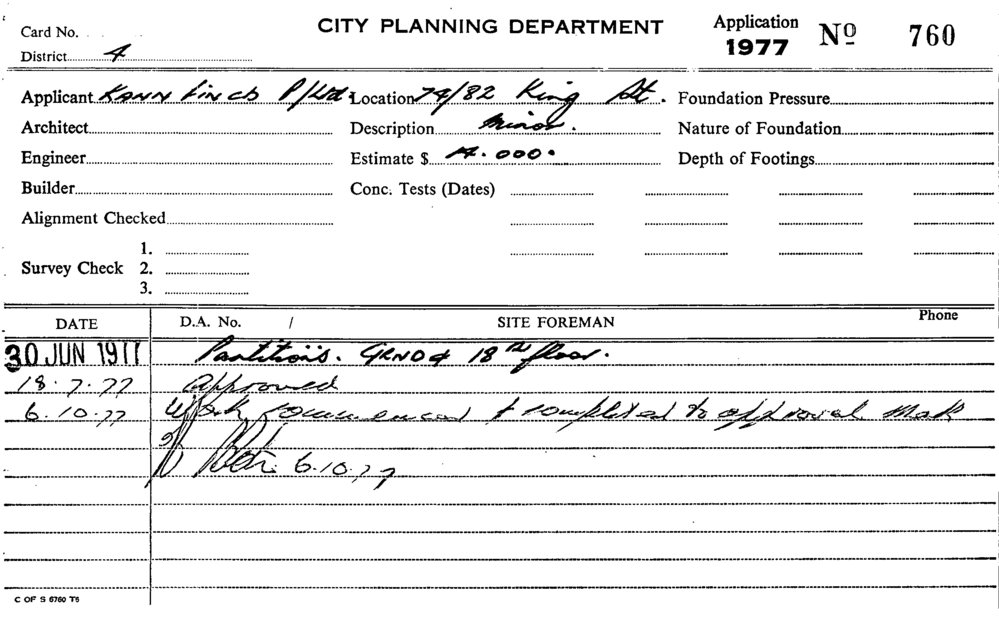 CITY PLANNING DEPARTMENT
Card No.
Application 1977 Nº 760
District 4
Applicant KANN FINCH P/Ltd. Location 74/82 King St. Foundation Pressure
Architect Description Minor. Nature of Foundation
Engineer Estimate $ 4.000. Depth of Footings
Builder Conc. Tests (Dates)
Alignment Checked
Survey Check 1.
2.
3.
DATE D.A. No. / SITE FOREMAN Phone
30 JUN 1977 Partitions. GRND & 18th floor.
18.7.77 Approved
6.10.77 Work commenced & completed to approval
6.10.77
C OF S 6760 T5